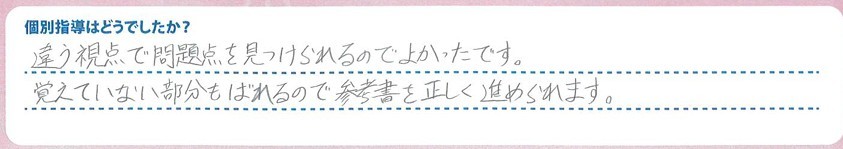 個別指導はどうでしたか？
違う視点で問題点を見つけられるのでよかったです。
覚えていない部分もばれるので参考書を正しく進められます。